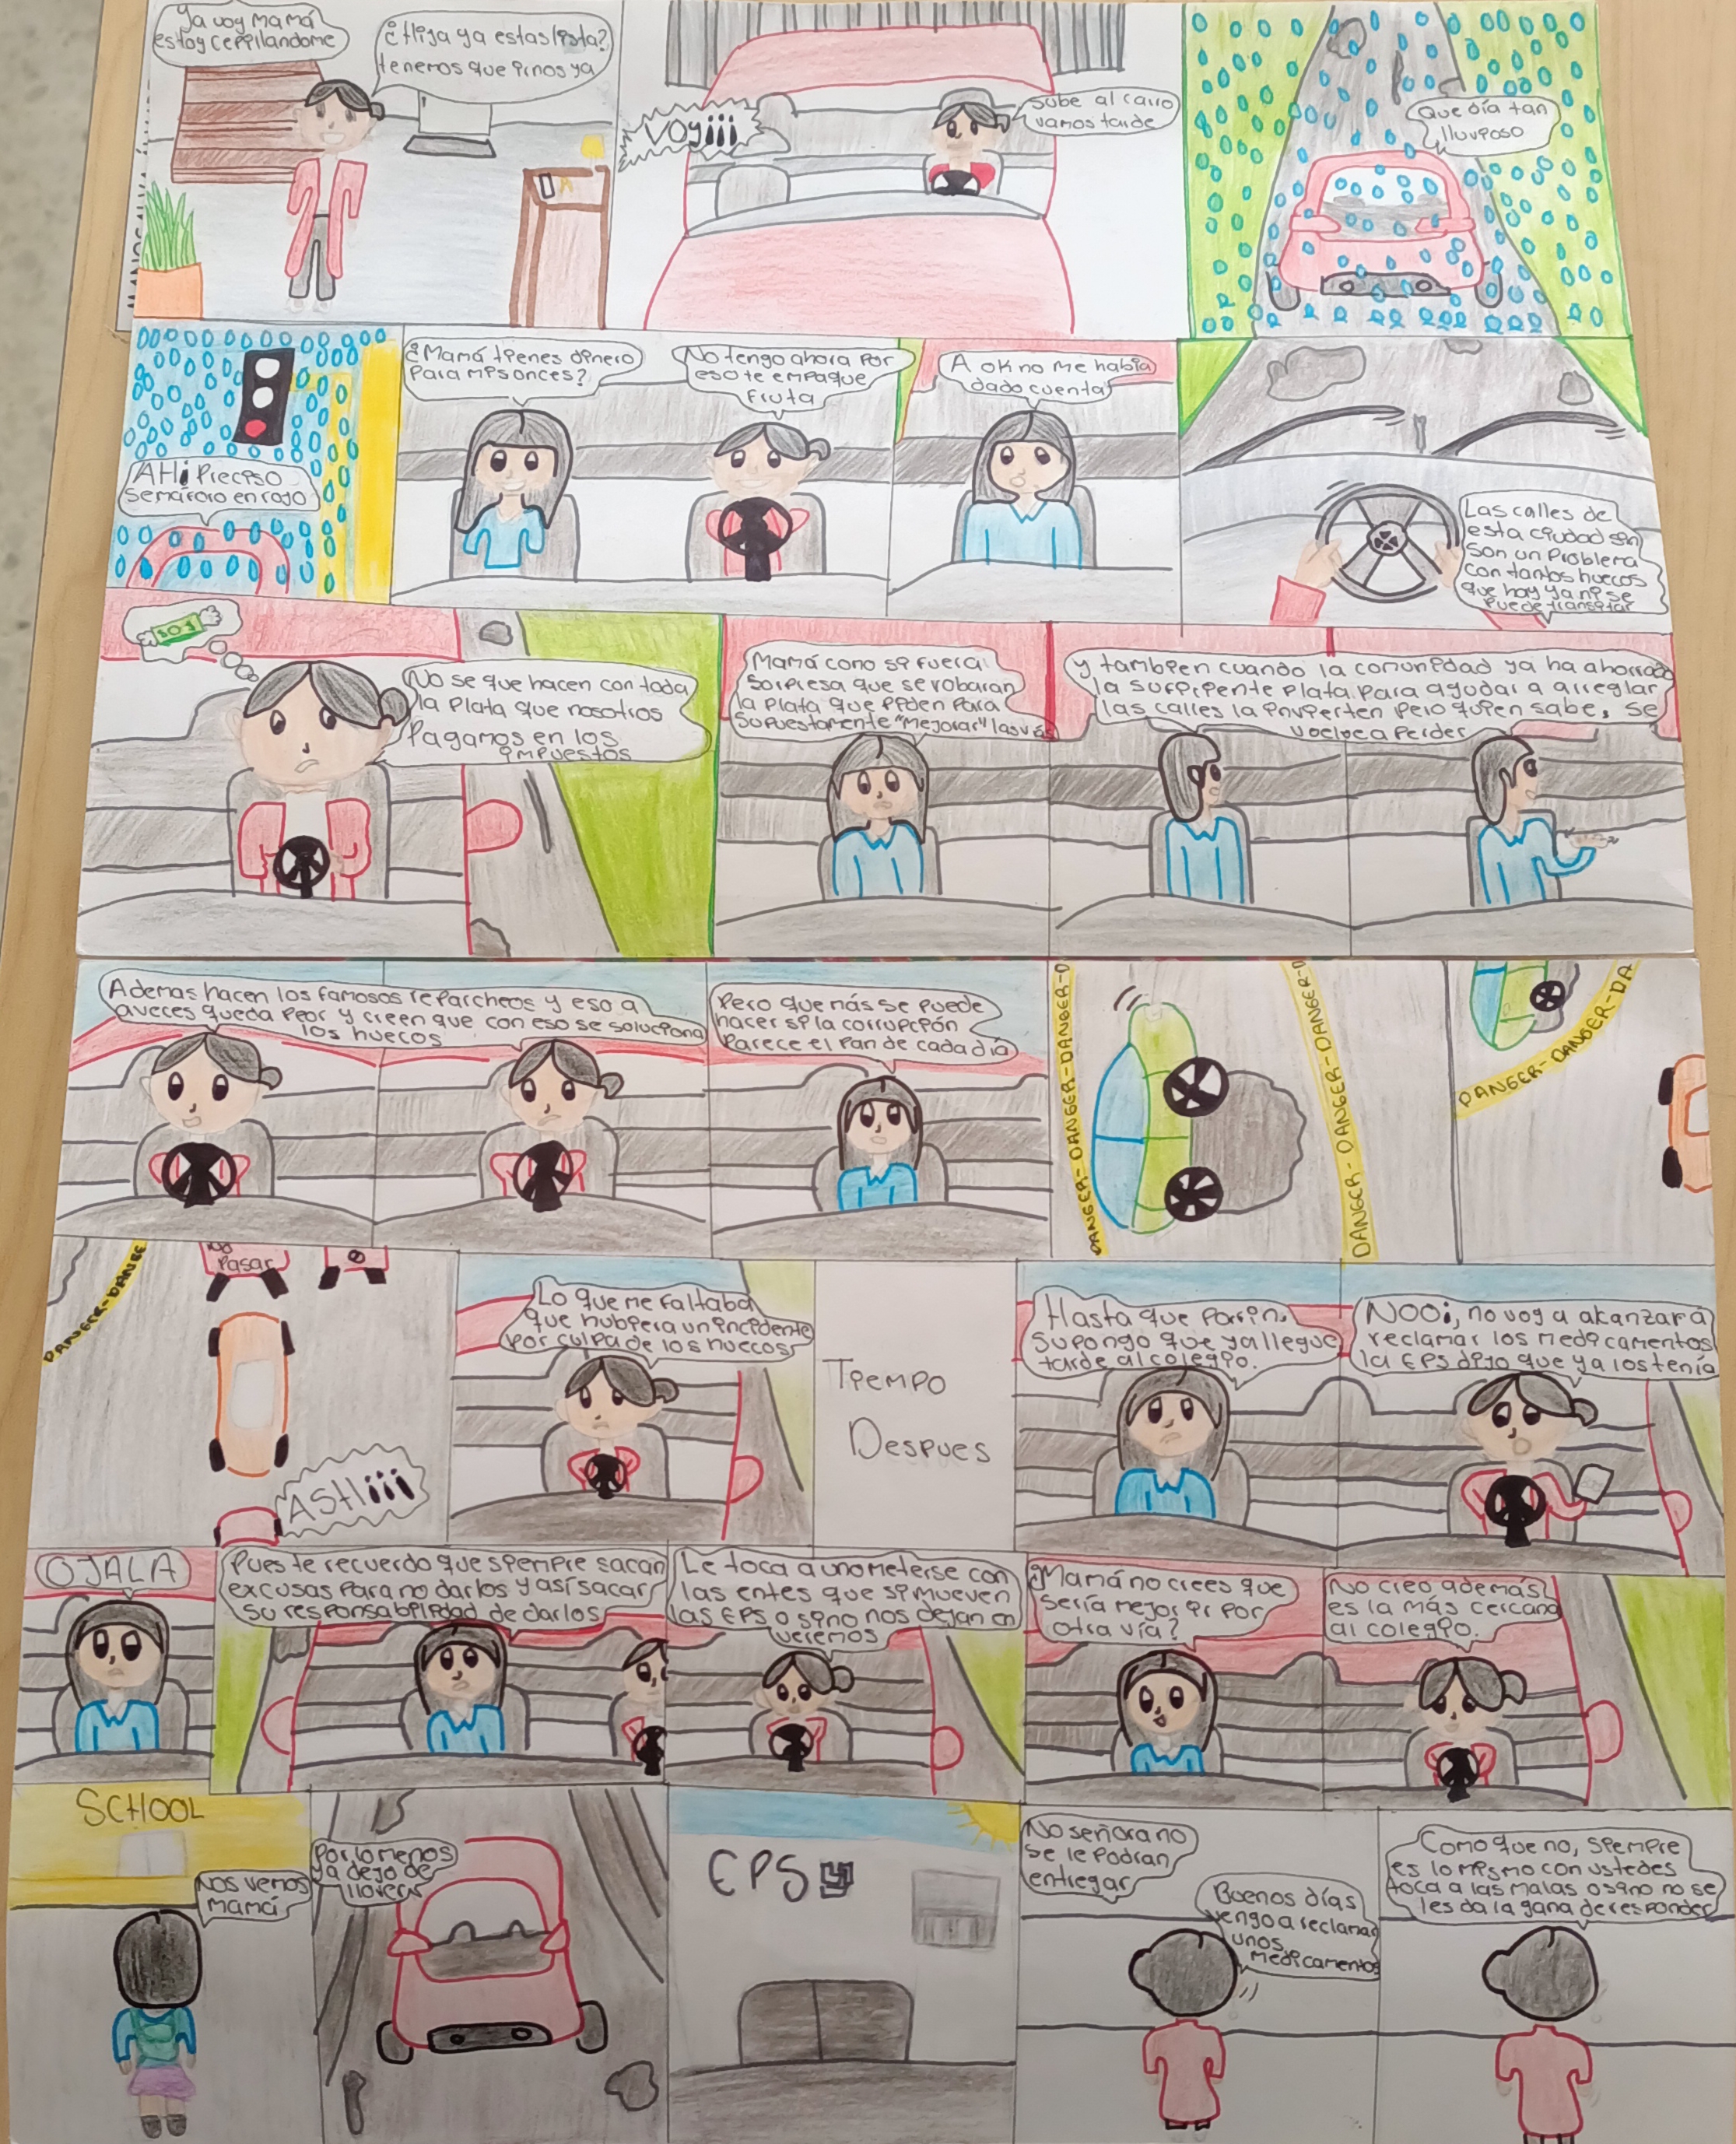 Ya voy Mamá
estoy cepilandome
¿Hija ya estas lista?
tenemos que irnos ya
VOY¡¡¡
Sube al carro
vamos tarde
Que día tan
lluvioso
AH¡ Preciso
semáforo en rojo
¿Mamá tienes dinero
Para mis onces?
No tengo ahora por
eso te empaque
fruta
A ok no me había
dado cuenta
Las calles de
esta ciudad sin
son un problema
con tantos huecos
que hay ya ni se
puede transitar
No se que hacen con toda
la plata que nosotros
Pagamos en los
impuestos
Mamá como si fuera
sorpresa que se robaran
la plata que piden para
supuestamente "mejorar" las vías
Y tambien cuando la comunidad ya ha ahorrado
la surpipente plata para ayudar a arreglar
las calles la invierten pero quien sabe, se
vuelve a perder
Ademas hacen los famosos reparcheos y eso a
aveces queda peor y creen que con eso se soluciona
los huecos
Pero que más se puede
hacer si la corrupción
Parece el pan de cada día
DANGER-DANGER-DANGER-D
DANGER-DANGER-DANGER-D
DANGER-DANGER-DA
DANGER-DANGE
Pasar
ASH¡¡¡
Lo que me faltaba
que hubiera un incidente
por culpa de los huecos
Tiempo
Despues
Hasta que por fin,
supongo que ya llegue
tarde al colegio.
NOO¡, no voy a akanzar a
reclamar los medicamentos
la EPS dijo que ya los tenía
OJALA
Pues te recuerdo que siempre sacan
excusas para no darlos y así sacar
su responsabilidad de darlos
Le toca a uno meterse con
las entes que si mueven
las EPS o sino nos dejan en
veremos
¿Mamá no crees que
sería mejor ir por
otra vía?
No creo además
es la más cercana
al colegio.
SCHOOL
Nos vemos
mamá
Por lo menos
ya dejo de
llover
EPS y
No señora no
se le podran
entregar
Buenos días
vengo a reclamar
unos
medicamentos
Como que no, siempre
es lo mismo con ustedes
toca a las malas o sino no se
les da la gana de responder